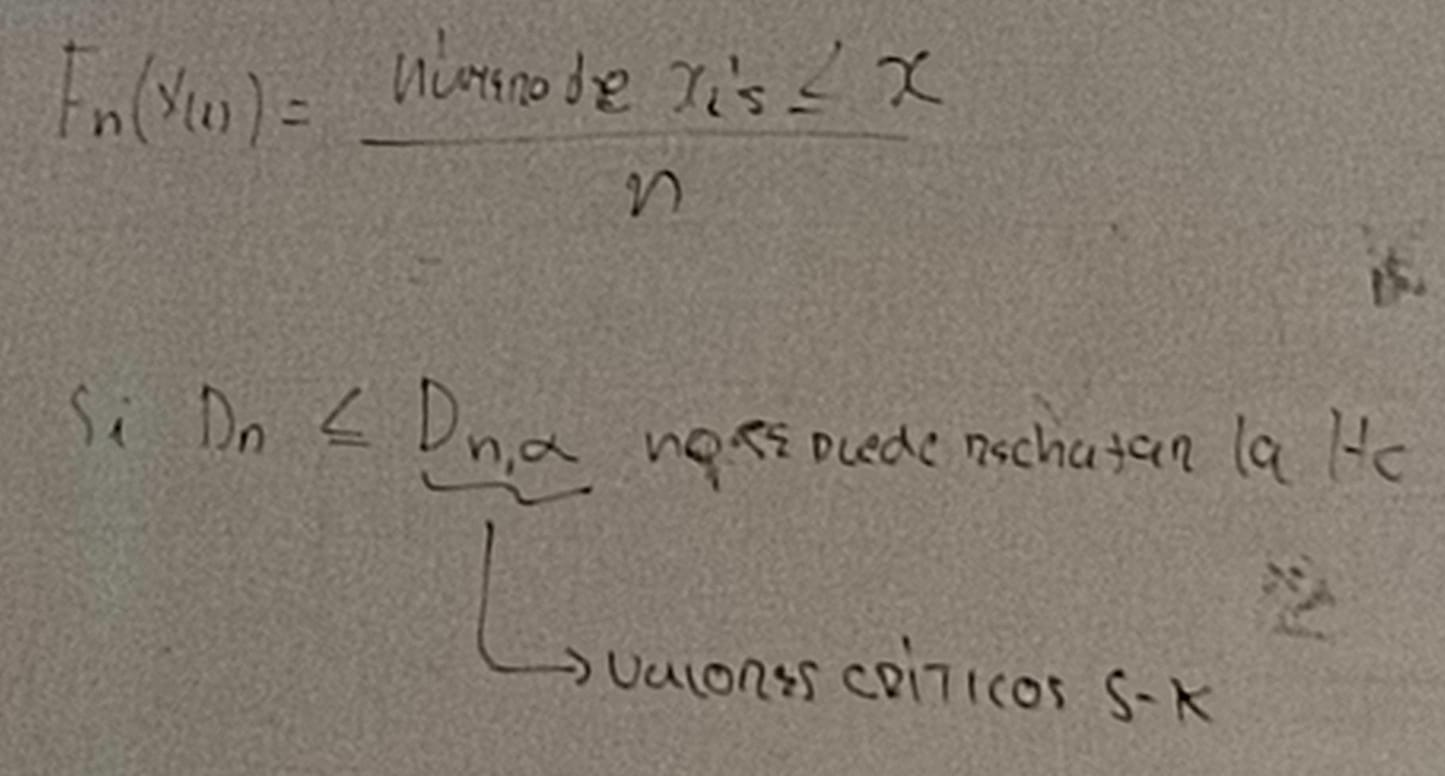 Fn(X(i)) = número de xi's ≤ x
n
Si Dn ≤ Dn,α no se puede rechazar la Hc
→ valores críticos S-K